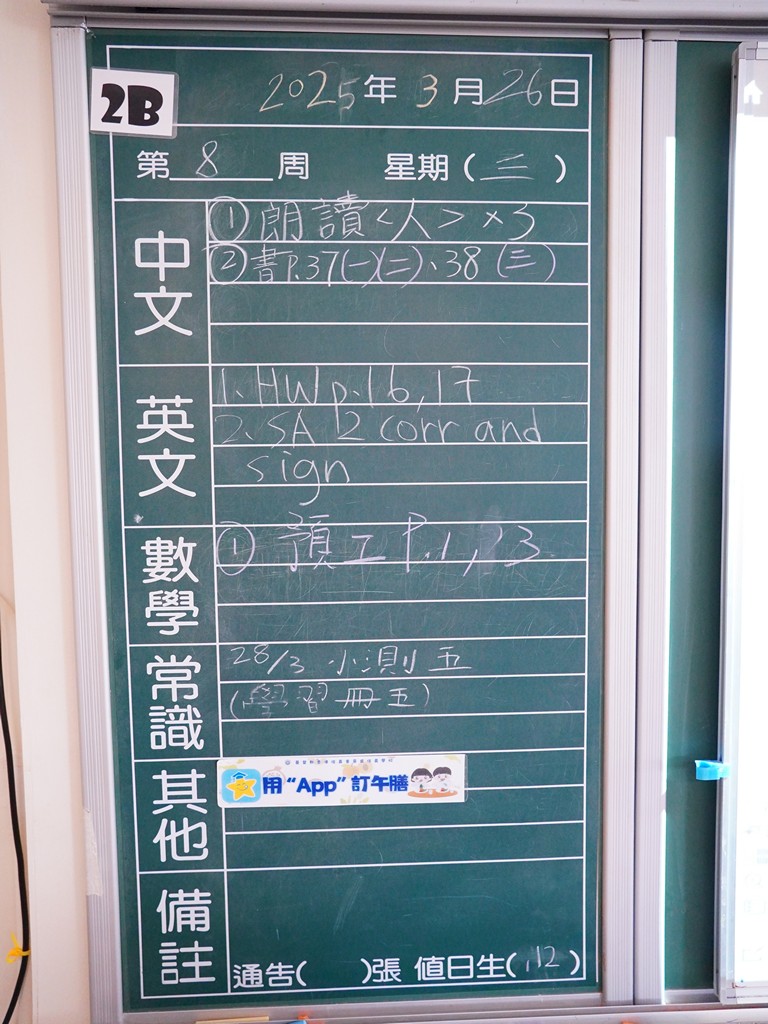 2B
2025年3月26日
第8周 星期(三)
中文
①朗讀<人>×3
②書P.37(一)(二)、38(三)
英文
1. HW p.16,17
2. SA 2 corr and
sign
數學
① 預工 P.1,23
常識
28/3 小測五
(學習冊五)
其他
用“App”訂午膳
備註
通告( )張 值日生( 12 )